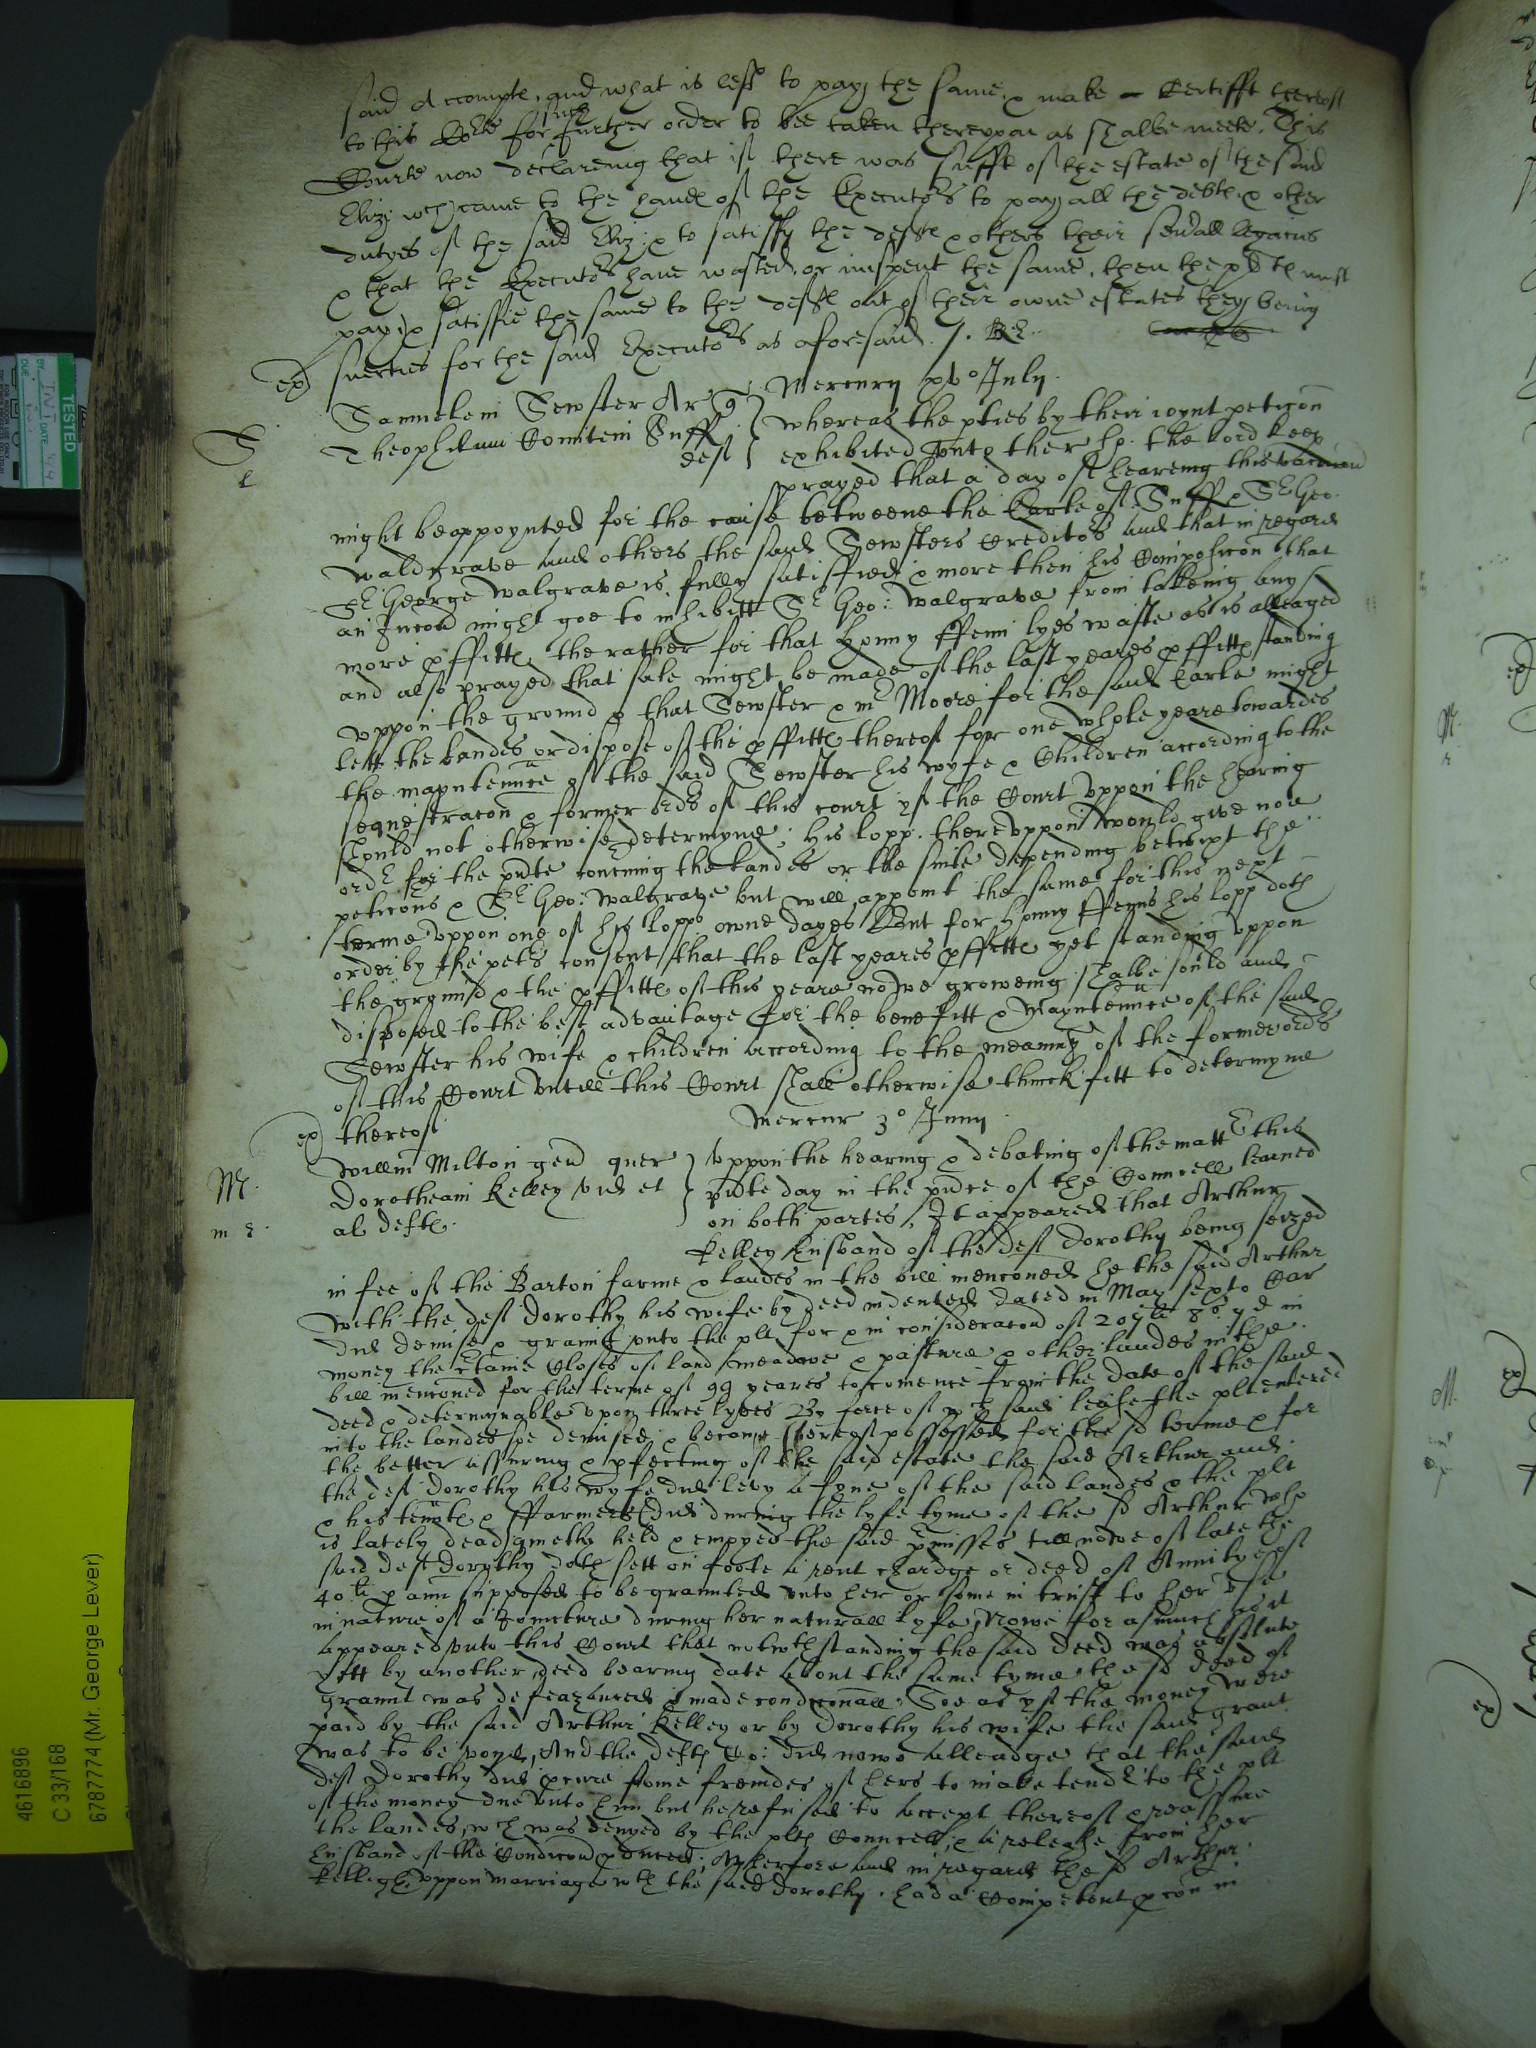 said Accompte, and what is lefte to pay the same, & make Certifft thereof
to this Corte for such further order to bee taken thereupon as shalbe meete. This
Courte now declareinge that if there was sufft of the estate of the said
Eliz: wch came to the hande of the Executors to pay all the debte & other
dutyes of the said Eliz: & to satisfy the defte & others their sevrall legacies
& that the Executors have wasted, or mispent the same, then the must
pay & satisfie the same to the defte out of their owne estates they being
suerties for the said Executors as aforesaid.
Mercury xvo July
Samuelem Sewster Ar q
Theophilum Comitem Suff
deft
whereas the pties by their ioynt peticon
exhibited unto the lord keep
prayed that a day of heareing this vacacion
might be appoynted for the cause betweene the Earle of Suff & Sr Geo:
Waldgrave and others the said Sewsters Creditors and that in regard
Sr George Walgrave is fully satisfied & more then his Composicon that
an Iniucon might goe to inhibitt Sr Geo: Walgrave from takeing any
more pffitte, the rather for that Honny ffenn lyes waste as is alleaged
and also prayed that sale might be made of the last yeares pffitte standing
uppon the ground & that Sewster & mr Moore for the said Earle might
lett the landes or dispose of the pffitte thereof for one whole yeare towardes
the mayntennce of the said Sewster his wyfe & Children according to the
sequestracon & former ordrs of this court yf the Court uppon the hearing
should not otherwise determyne; his lopp. thereuppon would give noe
ordr for the pnte concerning the landes or the suite depending betwixt the
peticons & Sr Geo: Walgrave but will appoint the same for this next
terme uppon one of his lopps owne dayes But for Honny ffenns his lopp doth
order by the petrs consent that the last yeares pffitte yet standing uppon
the ground & the pffitte of this yeare nowe groweing shalbe sould and
disposed to the best advantage for the benefitt & Mayntennce of the said
Sewster his wife & children according to the meaning of the former ordrs
of this Court untill this Court shall otherwise thinck fitt to determyne
thereof
Mercur 3o Juny
Willm Milton gen quer
Dorotheam Kelley vid et
al defte
M.
Uppon the hearing & debating of the mattr this
pnte day in the pnce of the Councell learned
on both partes, It appeared that Arthur
Kelley husband of the deft Dorothy being seized
in fee of the Barton farme & landes in the bill menconed he the said Arthur
with the deft Dorothy his wife by deed indented dated in May sexto Car
did demise & graunt unto the plt for & in consideracon of in
money the ctaine Closes of land meadowe & pasture & other landes in the
bill menconed for the terme of 99 yeares to comence from the date of the said
deed & determynable upon three lyves By force of wch said lease the plt entered
into the landes soe demised & became thereof possessed for the sd terme & for
the better assuring & pfecting of the said estate the said Arthur and
the deft Dorothy his wyfe did levy a fyne of the said landes & the plt
& his tennte & ffarmers did during the lyfe tyme of the sd Arthur who
is lately dead quietly hold & enioyed the said pmisses till nowe of late the
said deft Dorothy doth sett on foote a rent chardge or deed of Annitye of
40li p ann supposed to be graunted unto her or some in trust to her use
in nature of a Joincture during her naturall lyfe, Nowe for asmuch as it
appeared unto this Court that notwthstanding the said deed was absolute
yett by another deed bearing date about the same tyme the sd deed of
graunt was defeazanced & made condiconall: Soe as yf the money were
paid by the said Arthur Kelley or by Dorothy his wife the said grant
was to be voyd, And the defte Co: did nowe alleadge that the said
deft Dorothy did pcure some freindes of hers to make tendr to the plt
of the money due unto him but he refused to accept thereof & reassure
the landes, wch was denyed by the plte Councell, & a release from her
husband of the Condicon pduced; Wherfore and in regard the sd Arthur
Kelley uppon marriage wth the said Dorothy had a Competent pcon in
TESTED
4616896
C 33/168
6787774 (Mr. George Lever)